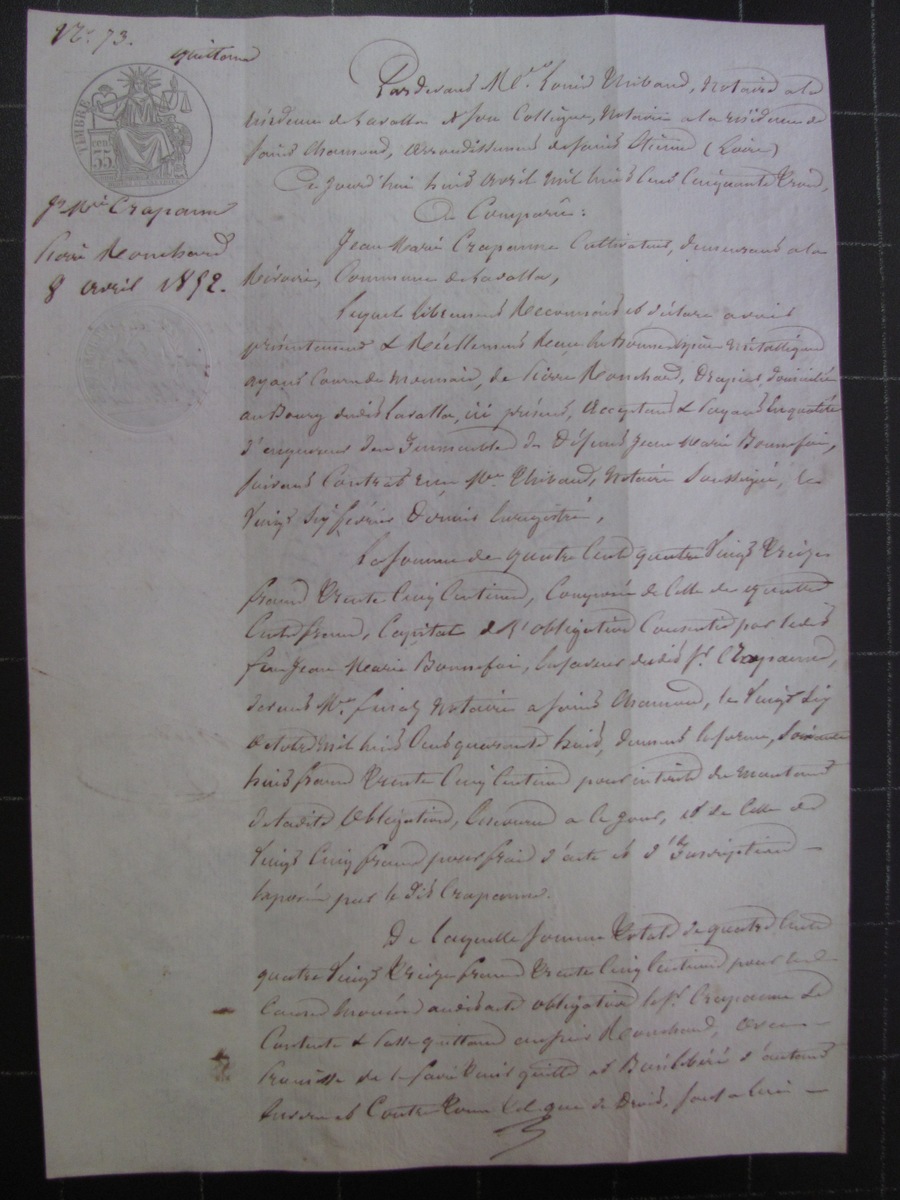 No. 73.
quittance
TIMBRE
35
Jn Mie Crapanne
Pierre Ronchard
8 avril 1852.
Pardevant Me. Louis Thibaud, Notaire a la
résidence de Lavalla & son Collègue, Notaire a la résidence de
saint Chamond, arrondissement de saint Etienne (Loire)
Ce jourd'hui huit avril mil huit cent cinquante trois,
a Comparu:
Jean Marie Crapanne Cultivateur, demeurant a la
Commune de Lavalla,
Lequel librement Reconnait et déclare avoir
présentement & Réellement Reçu en bonnes espèces métalliques
ayant Cours de monnaie, de Pierre Ronchard, Drapier, domicilié
au Bourg dudit Lavalla, ici présent, acceptant & payant En qualité
d'acquéreur d'un Immeuble du Défunt Jean Marie Bonnefoi,
suivant Contrat reçu Me Thibaud, Notaire Soussigné, le
vingt six février Dernier Enregistré,
La somme de quatre Cent quatre vingt treize
francs trente Cinq Centimes, Composée de Celle de quatre
Cents francs, Capital de l'obligation Consentie par ledit
feu Jean Marie Bonnefoi, En faveur dudit sr. Crapanne,
devant Me Notaire a saint Chamond, le vingt six
octobre mil huit Cent quarante huit, de soixante
huit francs trente Cinq Centimes pour intérêts du montant
de ladite obligation, Encourus a Ce jour, et de Celle de
vingt Cinq francs pour frais d'acte et d'Inscription –
Exposés par le dit Crapanne.
De laquelle somme totale de quatre Cent
quatre vingt treize francs trente Cinq Centimes pour les
Causes énoncées audit acte obligation le sr. Crapanne Se
Contente & Passe quittance audit Ronchard, avec –
Promesse de le faire tenir quitte et Bien libéré d'autant
Envers et Contre tous Tel que de Droit, sous a lui –